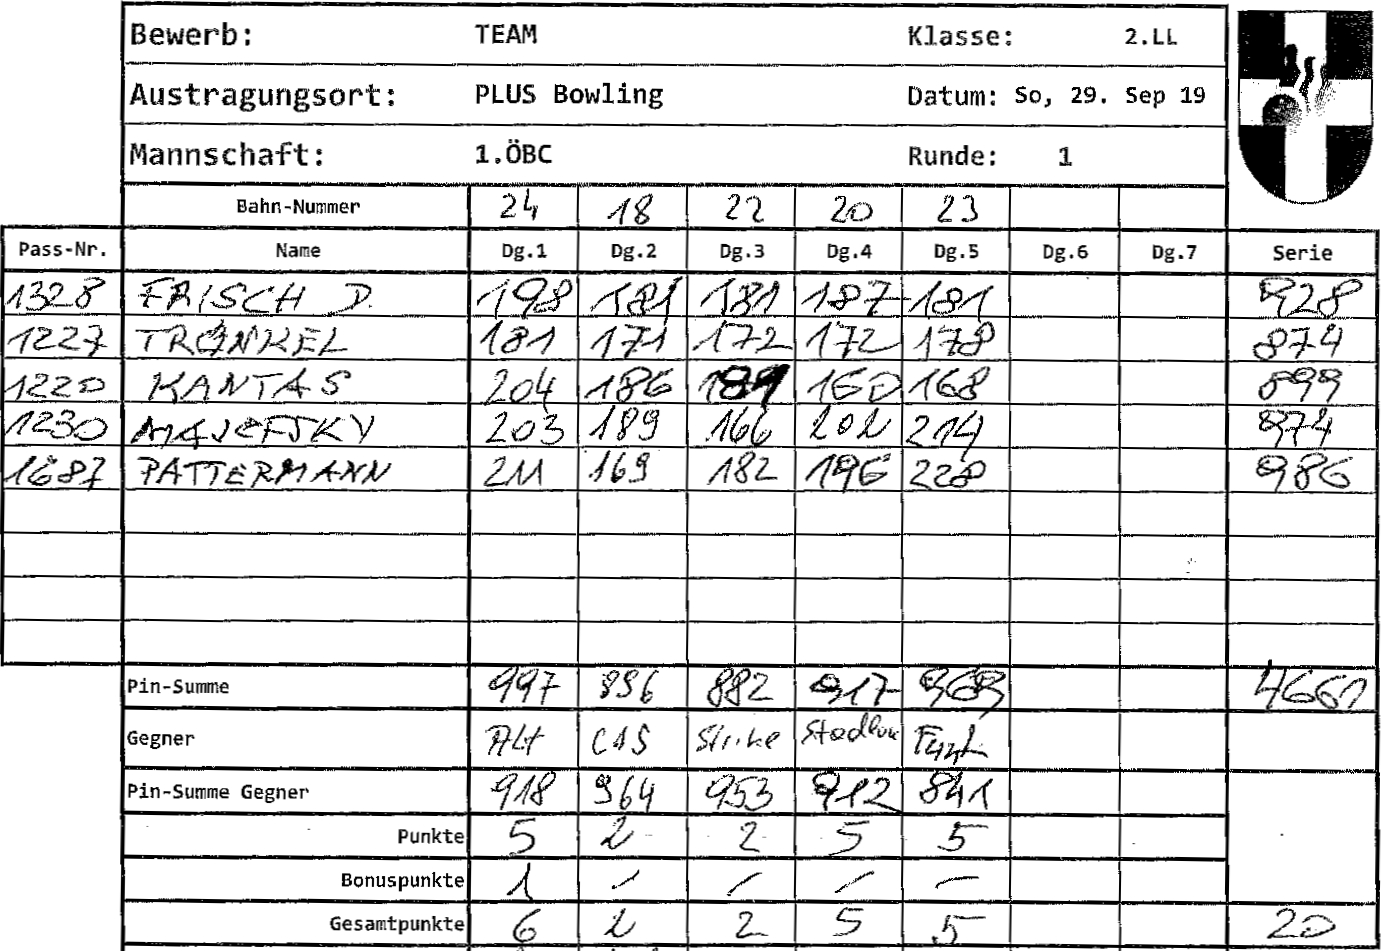 Bewerb: TEAM Klasse: 2.LL
Austragungsort: PLUS Bowling Datum: So, 29. Sep 19
Mannschaft: 1.ÖBC Runde: 1
Bahn-Nummer 24 18 22 20 23
Pass-Nr. Name Dg.1 Dg.2 Dg.3 Dg.4 Dg.5 Dg.6 Dg.7 Serie
1328 FRISCH D. 198 181 181 187 181 928
1227 TRÄNKEL 181 171 172 172 178 874
1220 KANTAS 204 186 181 160 168 899
1230 MAJEFSKY 203 189 166 202 214 974
1687 PATTERMANN 211 169 182 196 228 986
Pin-Summe 997 896 882 917 969 4661
Gegner Alt CAS Strike
Pin-Summe Gegner 918 964 953 912 841
Punkte 5 2 2 5 5
Bonuspunkte 1 / / / –
Gesamtpunkte 6 2 2 5 5 20